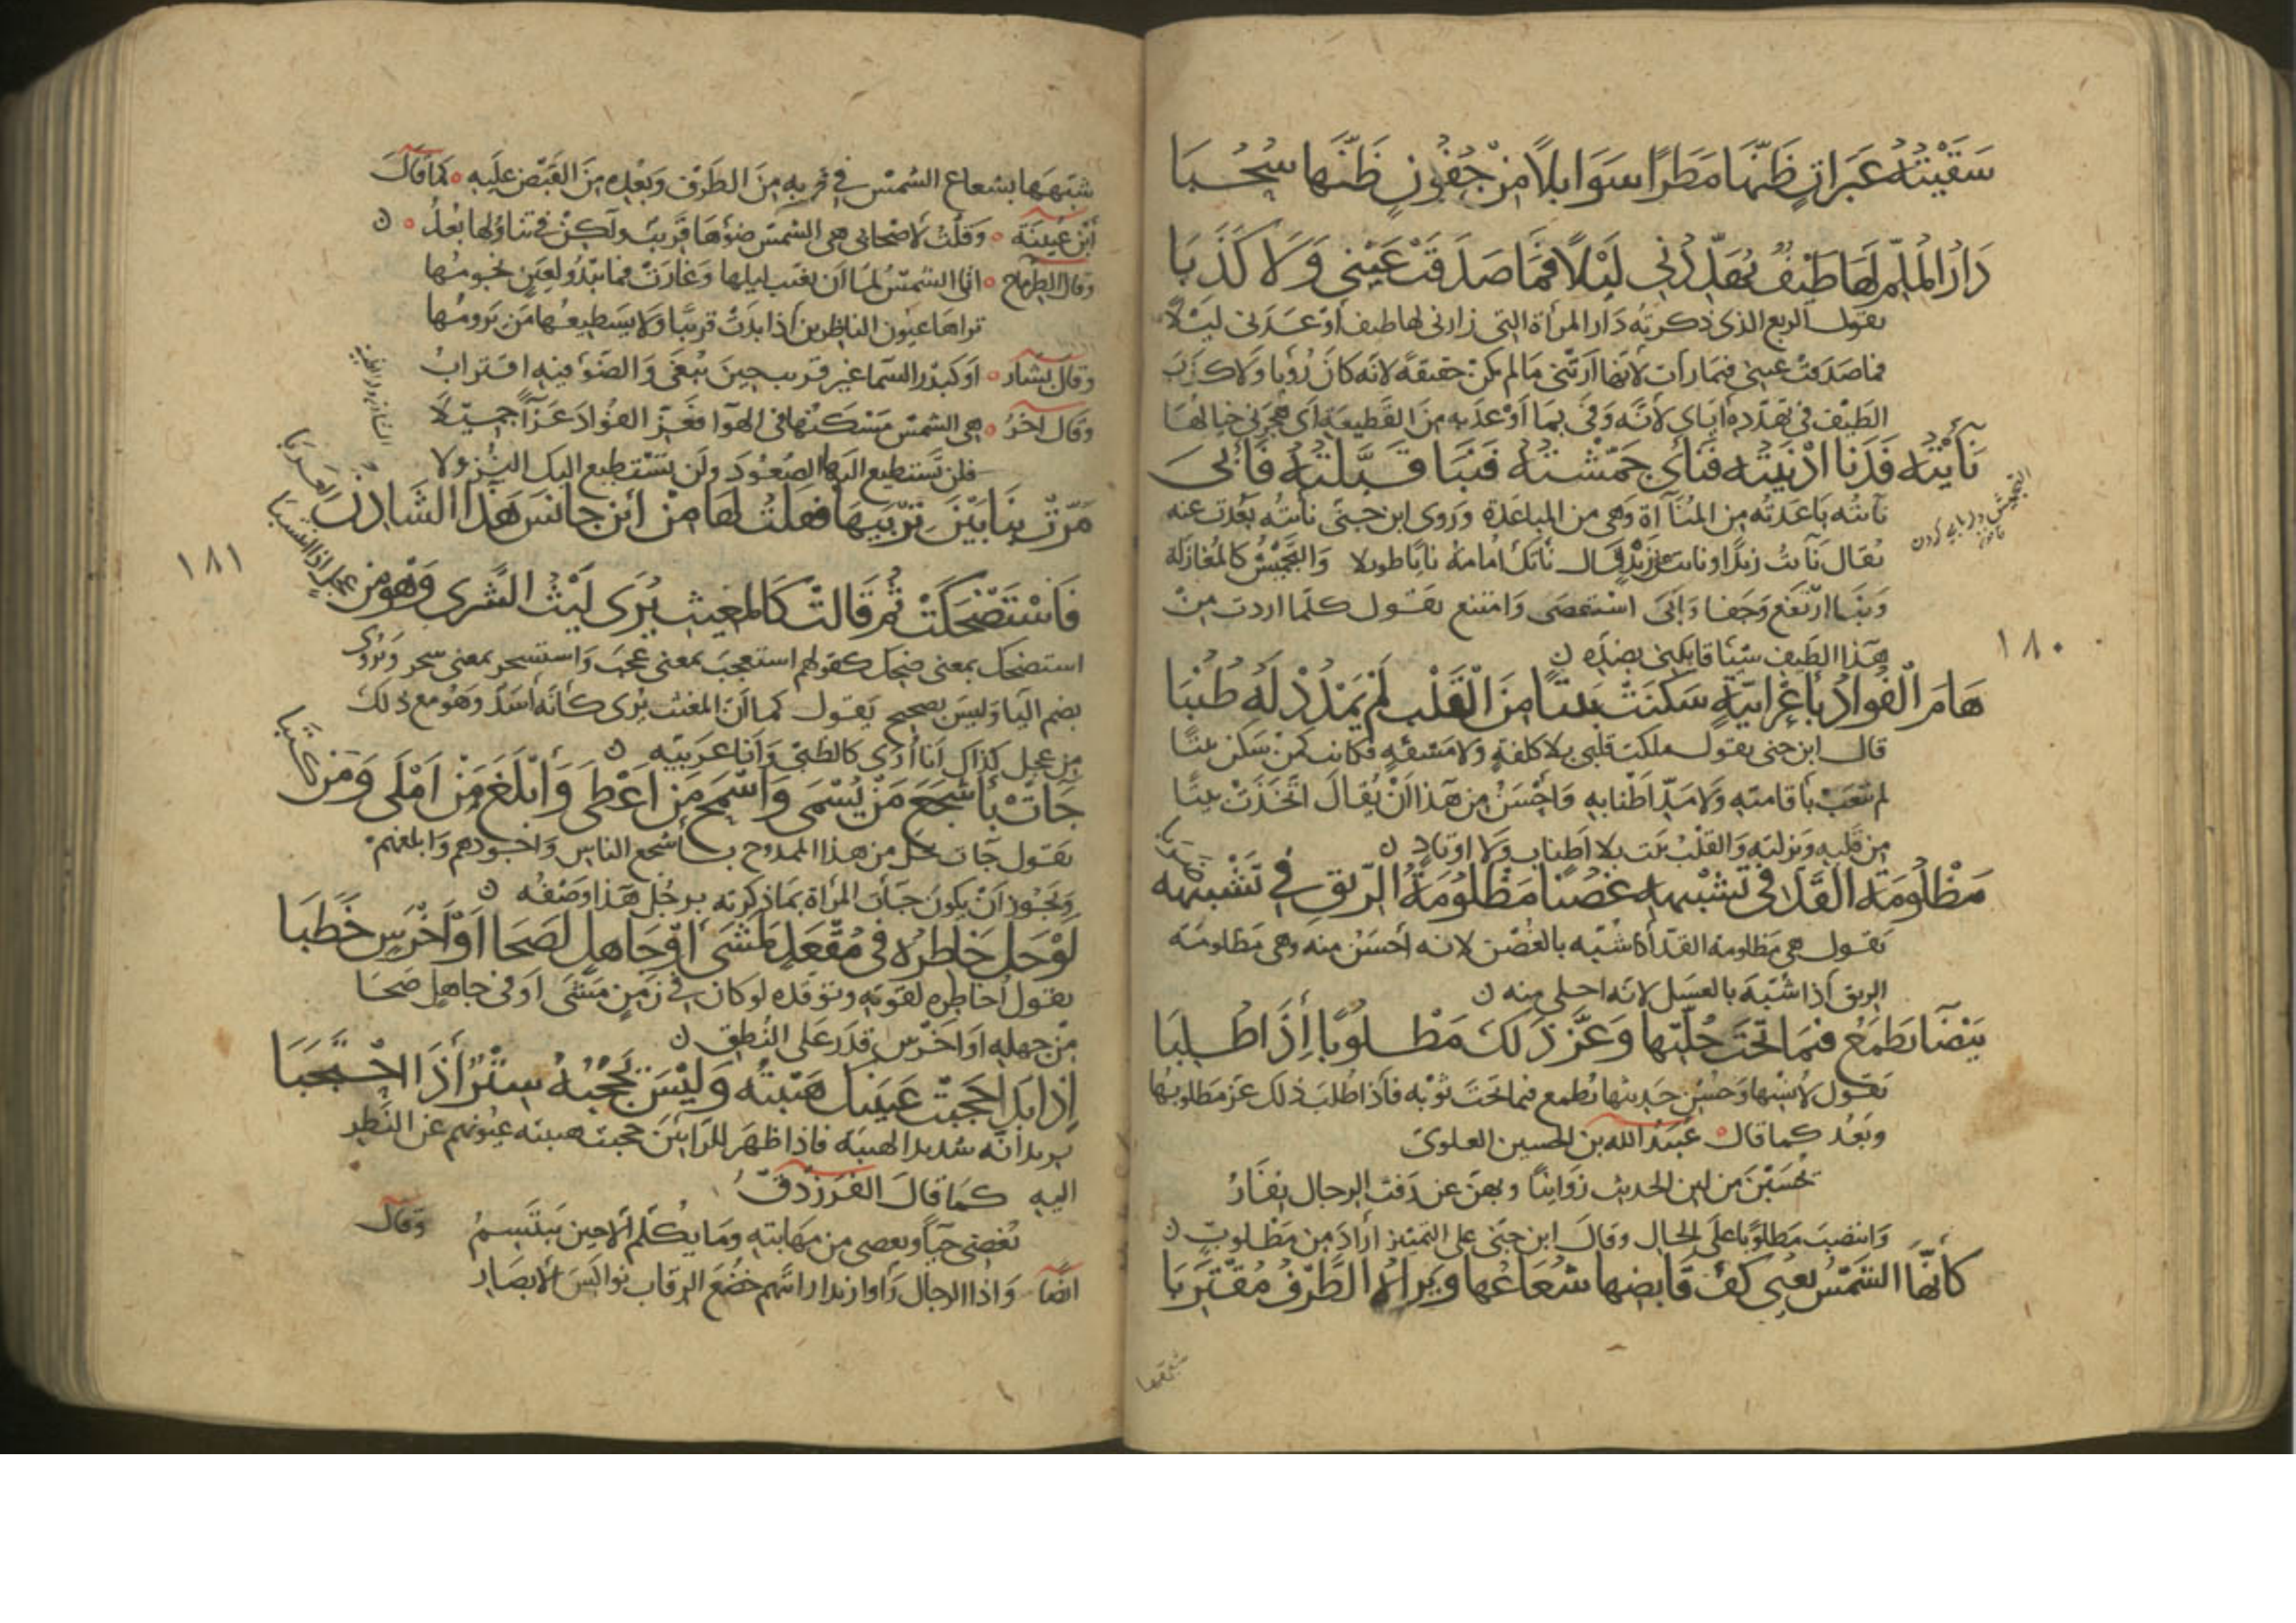 سَقَيْتُهُ عَبَرَاتٍ ظَنَّهَا مَطَرًا سَوَابِلًا مِنْ جُفُونٍ ظَنَّهَا سُحُبَا
دَارُ المُلِمِّ لَهَا طَيْفٌ يُهَدِّدُنِي لَيْلًا فَمَا صَدَقَتْ عَيْنِي وَلَا كَذَبَا
يقول الربع الذي ذكرته دار المرأة التي زارني لها طيف أوعدني ليلا
فما صدقت عيني فيما رأت لأنها أرتني ما لم يكن حقيقة لأنه كان رؤيا ولا كذب
الطيف في تهدده إياي لأنه وفى بما أوعد به من القطيعة أي هجرني خيالها
نَأَيْتُهُ فَدَنَا أَدْنَيْتُهُ فَنَأَى جَمَّشْتُهُ فَنَبَا قَبَّلْتُهُ فَأَبَى
نأيته باعدته من المنآآة وهي من المباعدة وروى ابن جني نأيته بعدت عنه
يقال نأيت زيدا ونأيت عن زيد قال نأتك أمامة نايا طويلا والتجميش كالمغازلة
ونبا ارتفع وجفا وأبى استعصى وامتنع يقول كلما اردت من
هذا الطيف شيئا قابلني بضده ن
١٨٠
هَامَ الْفُوَادُ بِأَعْرَابِيَّةٍ سَكَنَتْ بَيْتًا مِنَ الْقَلْبِ لَمْ يَمْدُدْ لَهُ طُنُبَا
قال ابن جني يقول ملكت قلبي بلا كلفة ولا مشقة فكانت كمن سكن بيتا
لم يتعب بأقامته ولا مد أطنابه وأحسن من هذا أن يقال اتخذت بيتا
من قلبه ونزلته والقلب بيت بلا أطناب ولا اوتاد ن
مَظْلُومَةُ الْقَدِّ فِي تَشْبِيهِهِ غُصُنًا مَظْلُومَةُ الرِّيقِ فِي تَشْبِيهِهِ ضَرَبَا
يقول هي مظلومة القد أذا شبه بالغصن لانه أحسن منه وهي مظلومة
الريق أذا شبه بالعسل لانه احلى منه ن
بَيْضَا تُطْمِعُ فِيمَا تَحْتَ حُلَّتِهَا وَعَزَّ ذَلِكَ مَطْلُوبًا إِذَا طُلِبَا
يقول لأنسها وحسن حديثها تطمع فيما تحت ثوبه فأذا طلب ذلك عز مطلوبها
وبعد كما قال عبيد الله بن الحسين العلوي
تحسبن من لين الحديث زوانيا وبهن عن رفث الرجال نفار
وانتصب مطلوبا على الحال وقال ابن جني على التمييز أراد من مطلوب ن
كَأَنَّهَا الشَّمْسُ يُعْيِي كَفَّ قَابِضِهَا شُعَاعُهَا وَيَرَاهُ الطَّرْفُ مُقْتَرِبَا
شبهها بشعاع الشمس في قربه من الطرف وبعده من القبض عليه كما قال
ابن عيينة وقلت لاصحابي هي الشمس ضؤها قريب ولكن في تناولها بعد ن
وقال الطرماح انا الشمس لما أن تغيب ليلها وغارت فما تبدو لعين نجومها
تراها عيون الناظرين أذا بدت قريبا ولا يسطيعها من يرومها
وقال بشار أو كبدر السما غير قريب حين يبغى والضوء فيه اقتراب
وقال آخر هي الشمس مسكنها في الهوا فعز الفؤاد عزاً جميلا
فلن تستطيع اليها الصعود ولن تستطيع اليك النزولا
مَرَّتْ بِنَا بَيْنَ تِرْبَيْهَا فَقُلْتُ لَهَا مِنْ أَيْنَ جَانَسَ هَذَا الشَّادِنُ العَرَبَا
١٨١
فَاسْتَضْحَكَتْ ثُمَّ قَالَتْ كَالمُغِيثِ يُرَى لَيْثَ الشَّرَى وَهْوَ مِنْ عِجْلٍ إِذَا انْتَسَبَا
استضحك بمعنى ضحك كقولهم استعجب بمعنى عجب واستسخر بمعنى سخر ويروى
بضم اليا وليس بصحيح يقول كما أن المغيث يرى كأنه أسد وهو مع ذلك
من عجل كذاك أنا أرى كالظبي وأنا عربية ن
جَاتْ بِأَشْجَعِ مَنْ يُسْمَى وَأَسْمَحِ مَنْ أَعْطَى وَأَبْلَغِ مَنْ أَمْلَى وَمَنْ كَتَبَا
يقول جات عجل من هذا الممدوح بأشجع الناس واجودهم وابلغهم
ويجوز أن يكون جأت المرأة بما ذكرته برجل هذا وصفه ن
لَوْ حَلَّ خَاطِرُهُ فِي مُقْعَدٍ لَمَشَى أَوْ جَاهِلٍ لَصَحَا أَوْ أَخْرَسٍ خَطَبَا
يقول خاطره لقوته وتوقده لو كان في زمن مشى او في جاهل صحا
من جهله او اخرس قدر على النطق ن
إِذَا بَدَا حَجَبَتْ عَيْنَيْكَ هَيْبَتُهُ وَلَيْسَ يَحْجُبُهُ سِتْرٌ إِذَا احْتَجَبَا
يريد أنه شديد الهيبة فاذا ظهر للرايين حجبت هيبته عيونهم عن النظر
اليه كما قال الفرزدق
يغضي حيآ ويغضى من مهابته وما يكلم ألا حين يبتسم وقال
ايضا واذا الرجال رأوا يزيد رايتهم خضع الرقاب نواكس الابصار